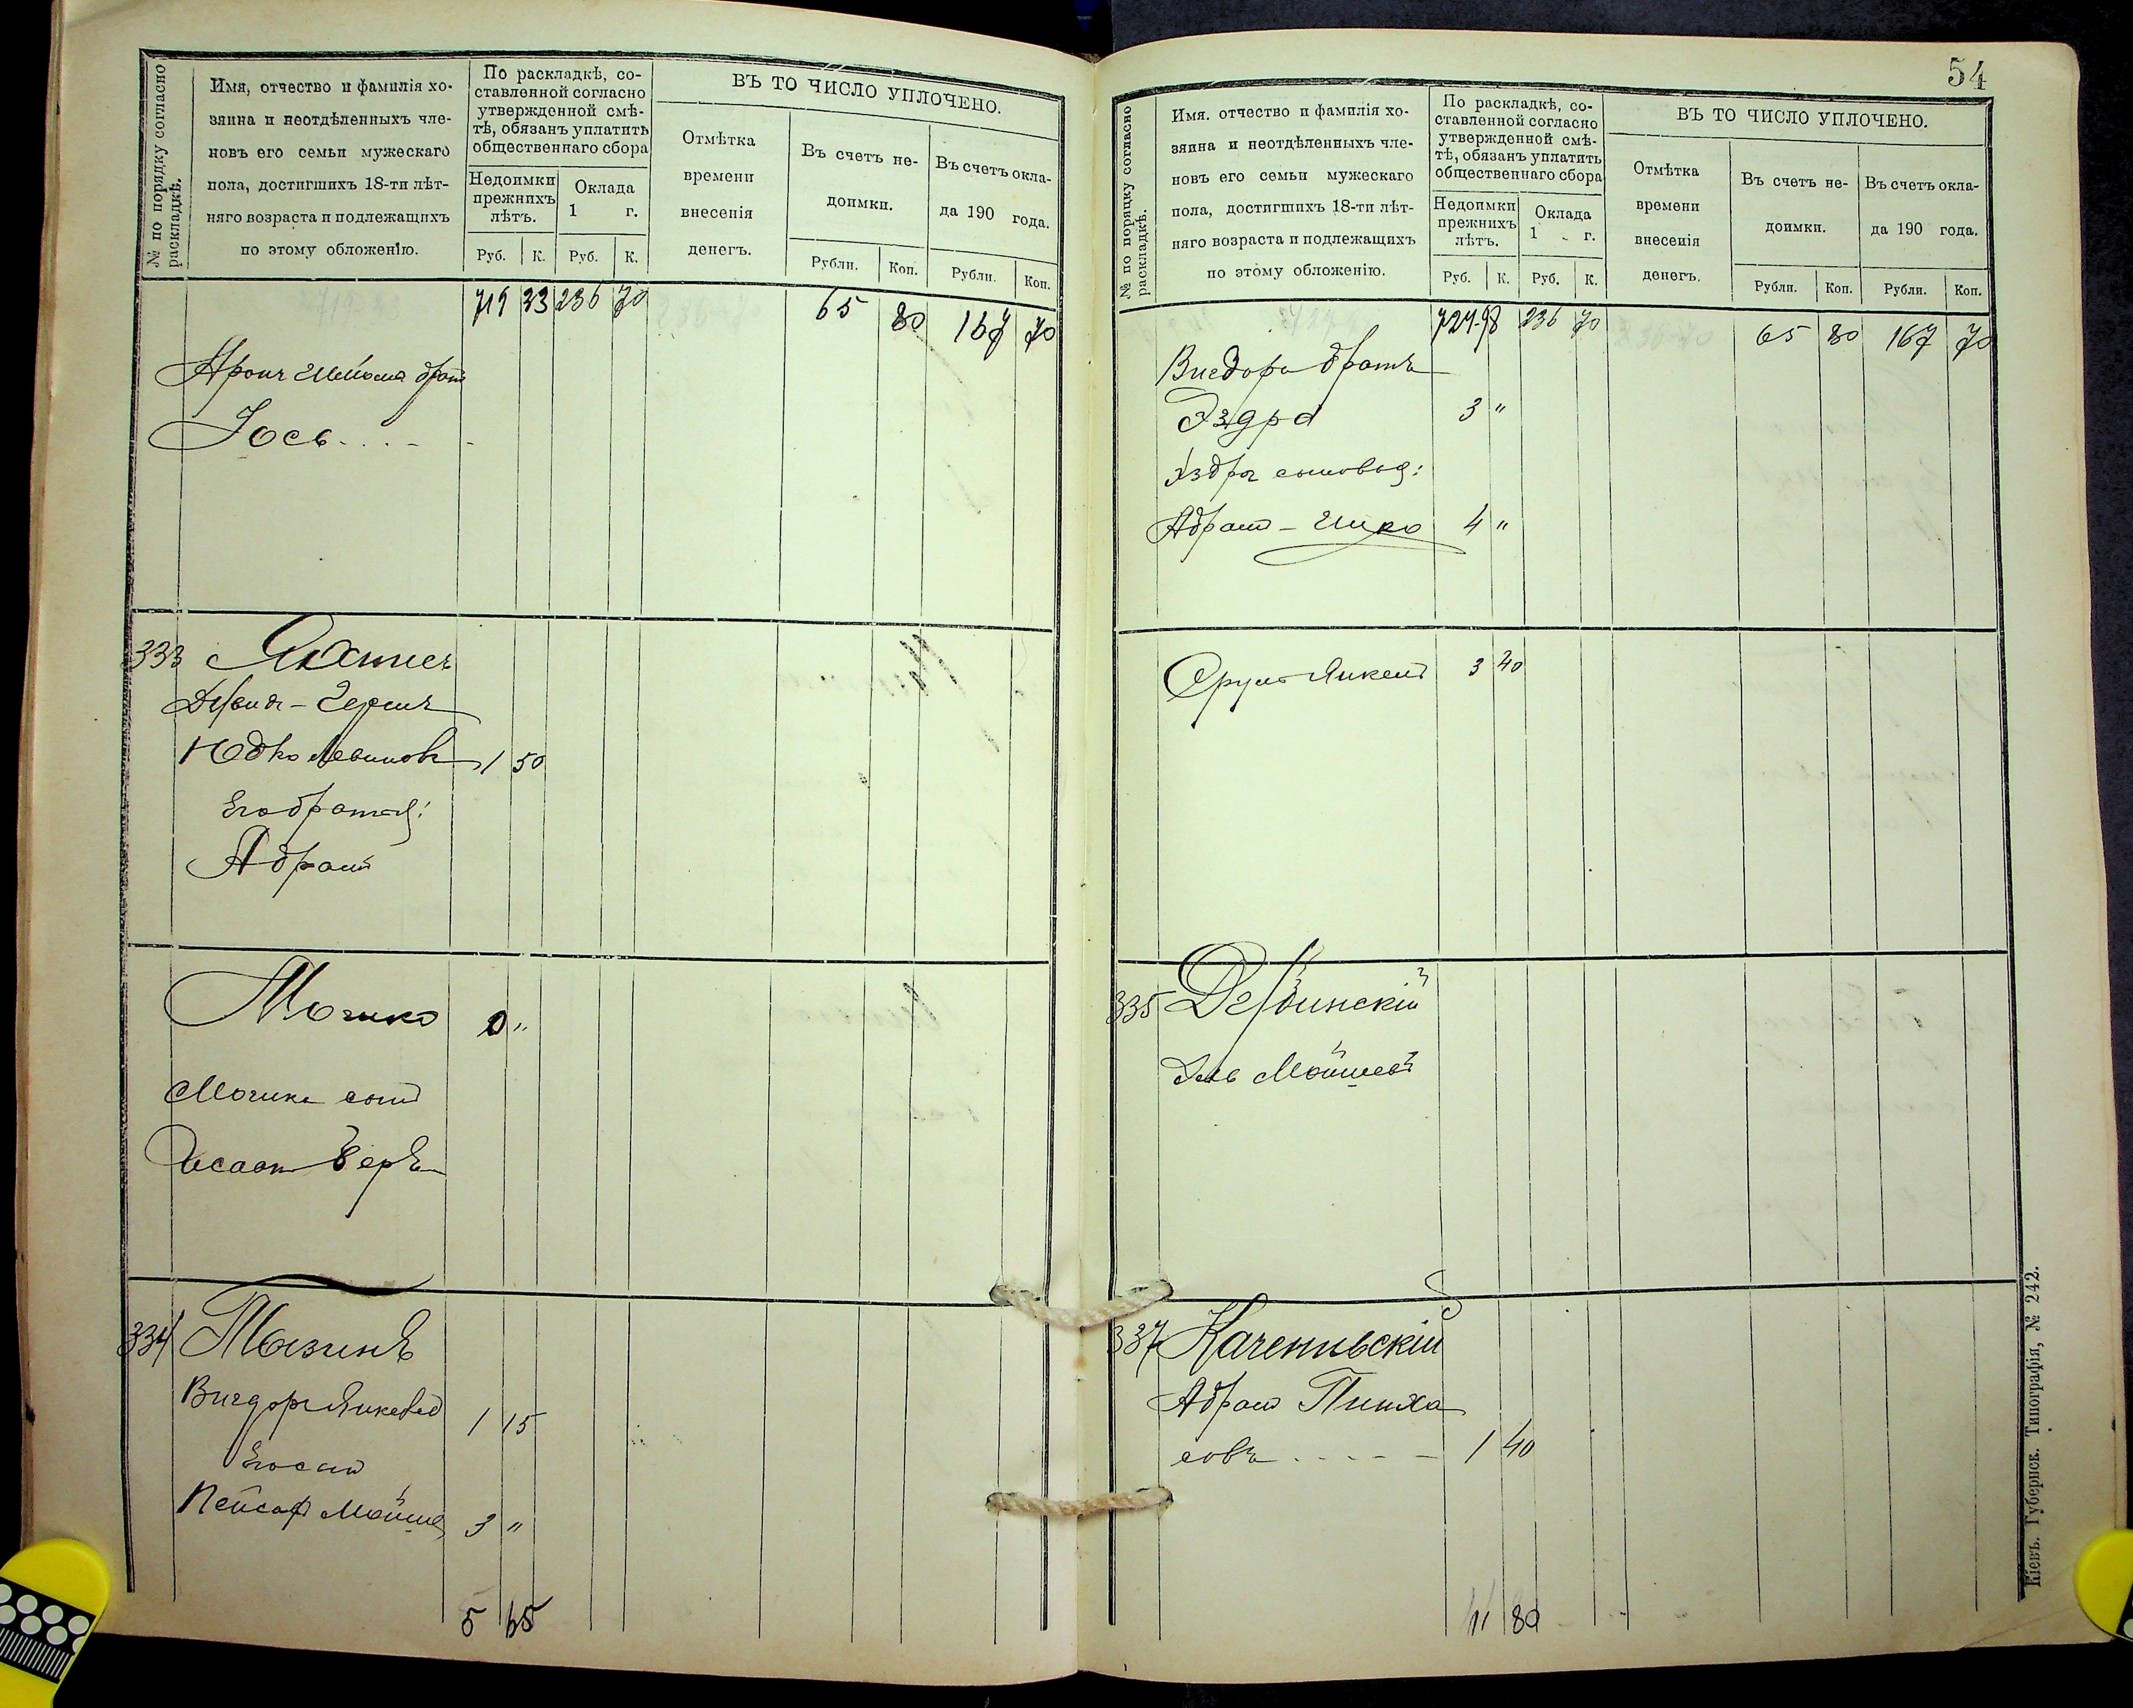 № по порядку согласно раскладкѣ.
Имя, отчество и фамилія хо-
зяина и неотдѣленныхъ чле-
новъ его семьи мужескаго
пола, достигшихъ 18-ти лѣт-
няго возраста и подлежащихъ
по этому обложенію.
По раскладкѣ, со-
ставленной согласно
утвержденной смѣ-
тѣ, обязанъ уплатить
общественнаго сбора
Недоимки
прежнихъ
лѣтъ.
Оклада
1 г.
Руб. К. Руб. К.
ВЪ ТО ЧИСЛО УПЛОЧЕНО.
Отмѣтка
времени
внесенія
денегъ.
Въ счетъ не-
доимки.
Въ счетъ окла-
да 190 года.
Рубли. Коп. Рубли. Коп.
719 33 236 70 65 80 167 70
братъ
Іось
333
Юдко 1 50
Его братья:
Абрамъ
Мошко 0 "
Мошки сынъ
Беръ
334 Мазинъ
Вигдоръ Янкевъ 1 15
Его сынъ
Пейсах Мойше 3 "
5 65
54
№ по порядку согласно раскладкѣ.
Имя. отчество и фамилія хо-
зяина и неотдѣленныхъ чле-
новъ его семьи мужескаго
пола, достигшихъ 18-ти лѣт-
няго возраста и подлежащихъ
по этому обложенію.
По раскладкѣ, со-
ставленной согласно
утвержденной смѣ-
тѣ, обязанъ уплатить
общественнаго сбора
Недоимки
прежнихъ
лѣтъ.
Оклада
1 г.
Руб. К. Руб. К.
ВЪ ТО ЧИСЛО УПЛОЧЕНО.
Отмѣтка
времени
внесенія
денегъ.
Въ счетъ не-
доимки.
Въ счетъ окла-
да 190 года.
Рубли. Коп. Рубли. Коп.
724 98 236 70 65 80 167 70
братъ
Эздра 3 "
Эздры сыновья:
Абрамъ - 4 "
Сруль Янкель 3 40
335
Мойшевъ
337
Абрамъ Пинха
совъ 1 40
11 80
Кіевъ. Губернск. Типографія, № 242.